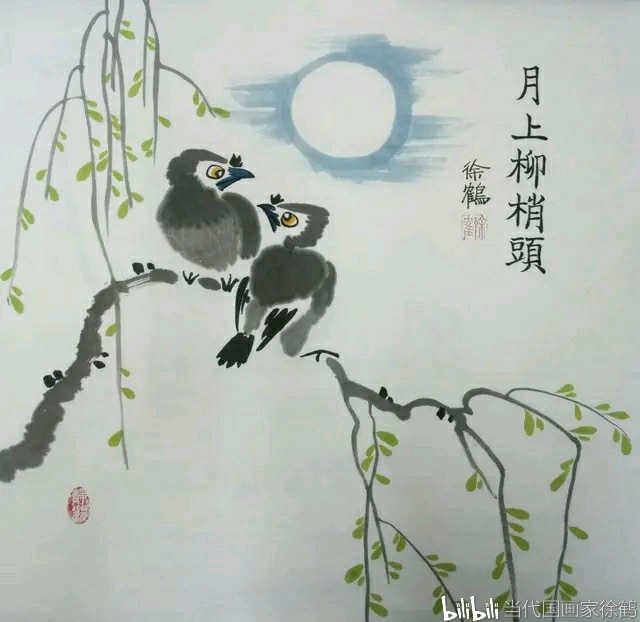 月上柳梢頭
徐鶴
bilibili 当代国画家徐鹤